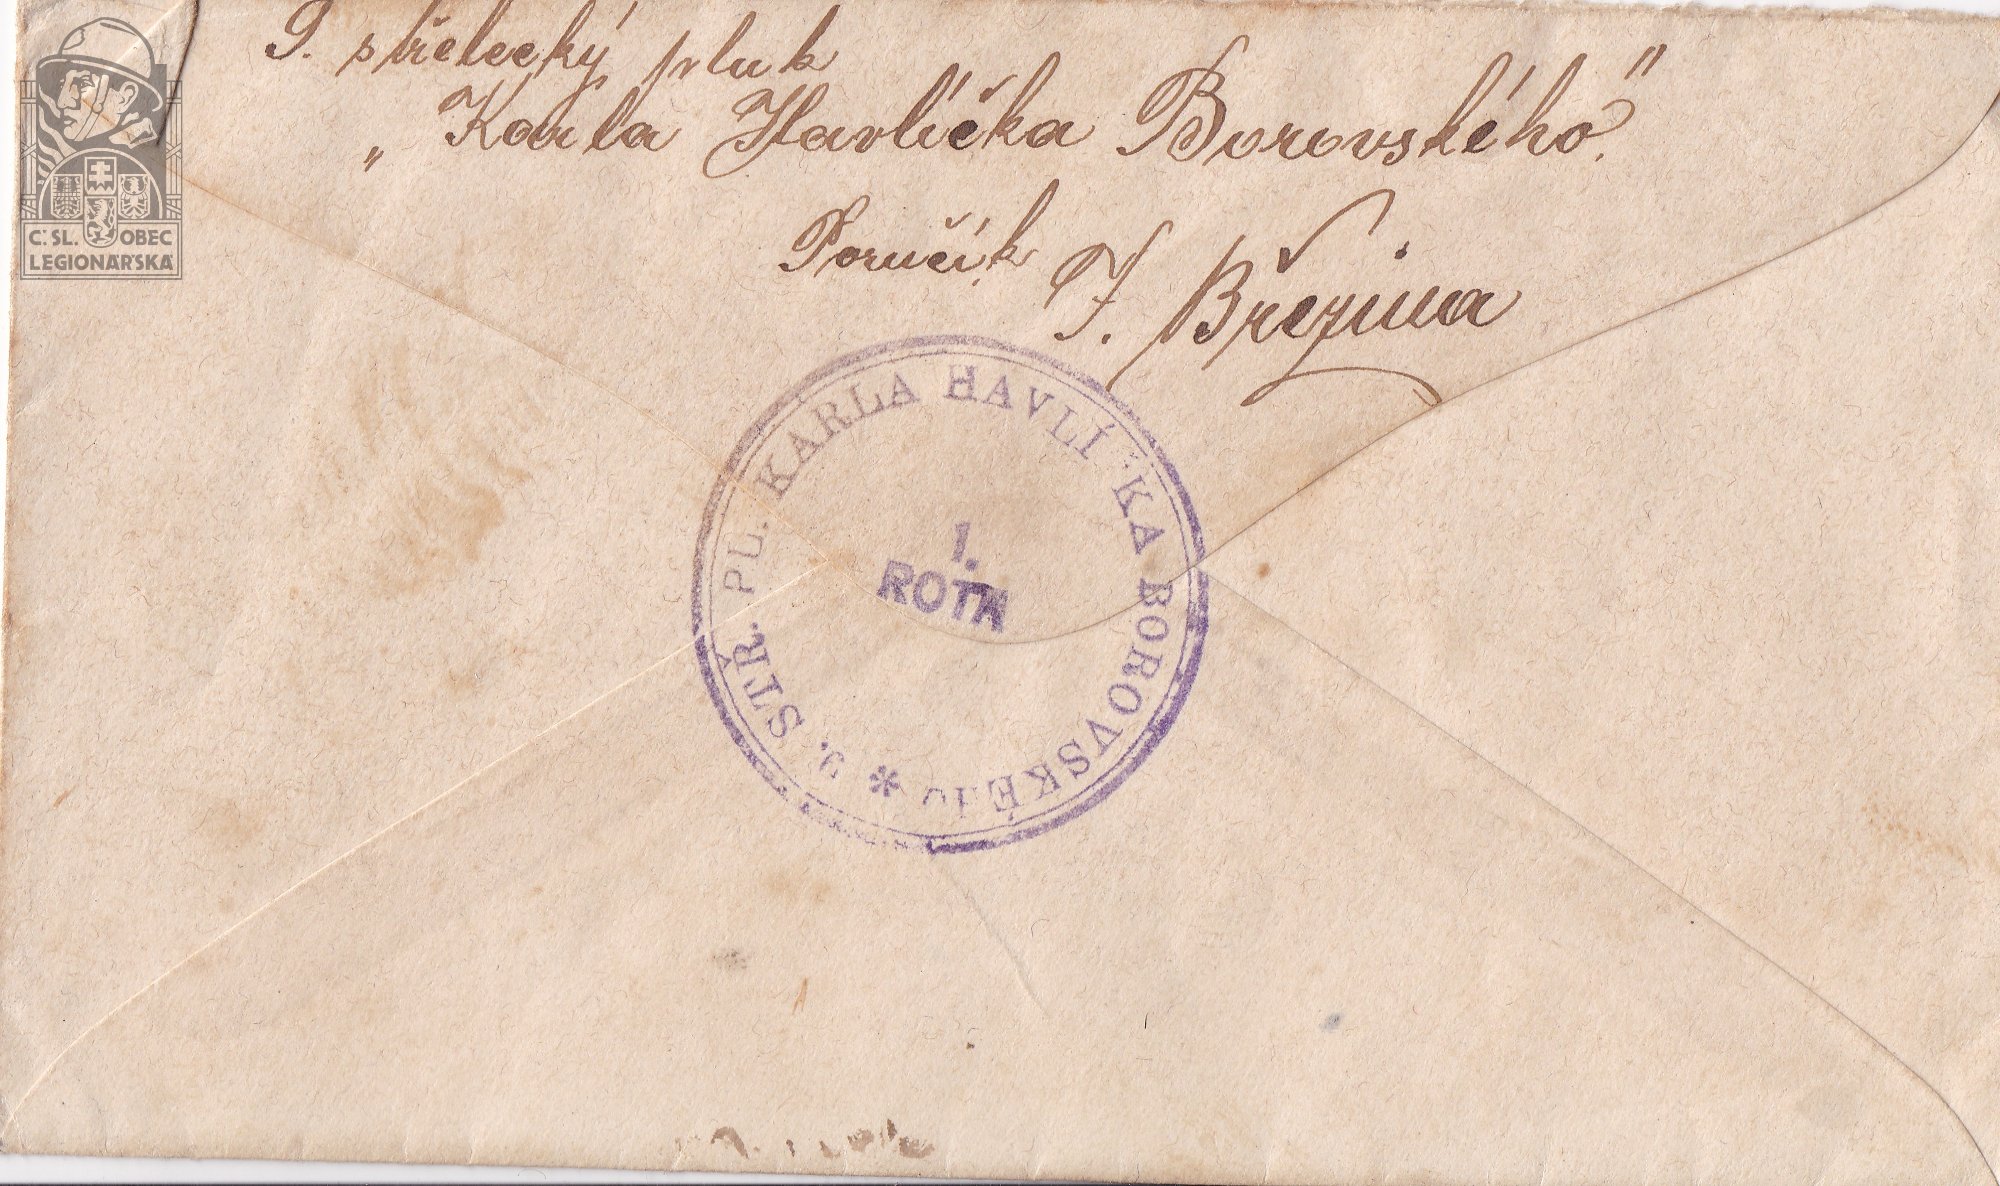 9. střelecký pluk
„Karla Havlíčka Borovského."
Poručík J. Březina
9. STŘ. PL. KARLA HAVLÍČKA BOROVSKÉHO *
1.
ROTA
Č.SL. OBEC
LEGIONÁŘSKÁ